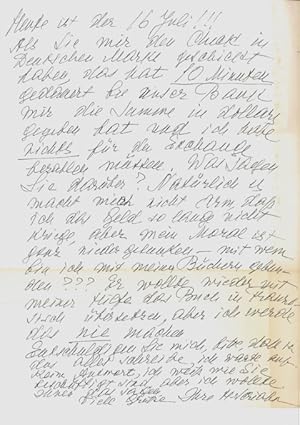 Heute ist der 16 Juli!!!
Als Sie mir den Check in
Deutschen Marke geschickt
haben, das hat 10 Minuten
gedauert bis unser Bank
mir die Summe in Dollars
gegeben hat und ich habe
nichts für die Exchange
bezahlen müssen. Was sagen
Sie darüber? Natürlich es
macht mich nicht arm, daß
ich das Geld so lange nicht
kriege, aber mein Moral ist
ganz niedergesunken - mit wem
bin ich mit meinen Büchern gebun-
den??? Er wollte wieder mit
meiner Hilfe das Buch in
, aber ich werde
das nie machen
Entschuldigen Sie mich, bitte, daß ich
das alles schreibe, ich warte auf
kein Antwort, ich weiß wie Sie
beschäftigt sind, aber ich wollte
Ihnen das sagen
Viele Grüße Ihre